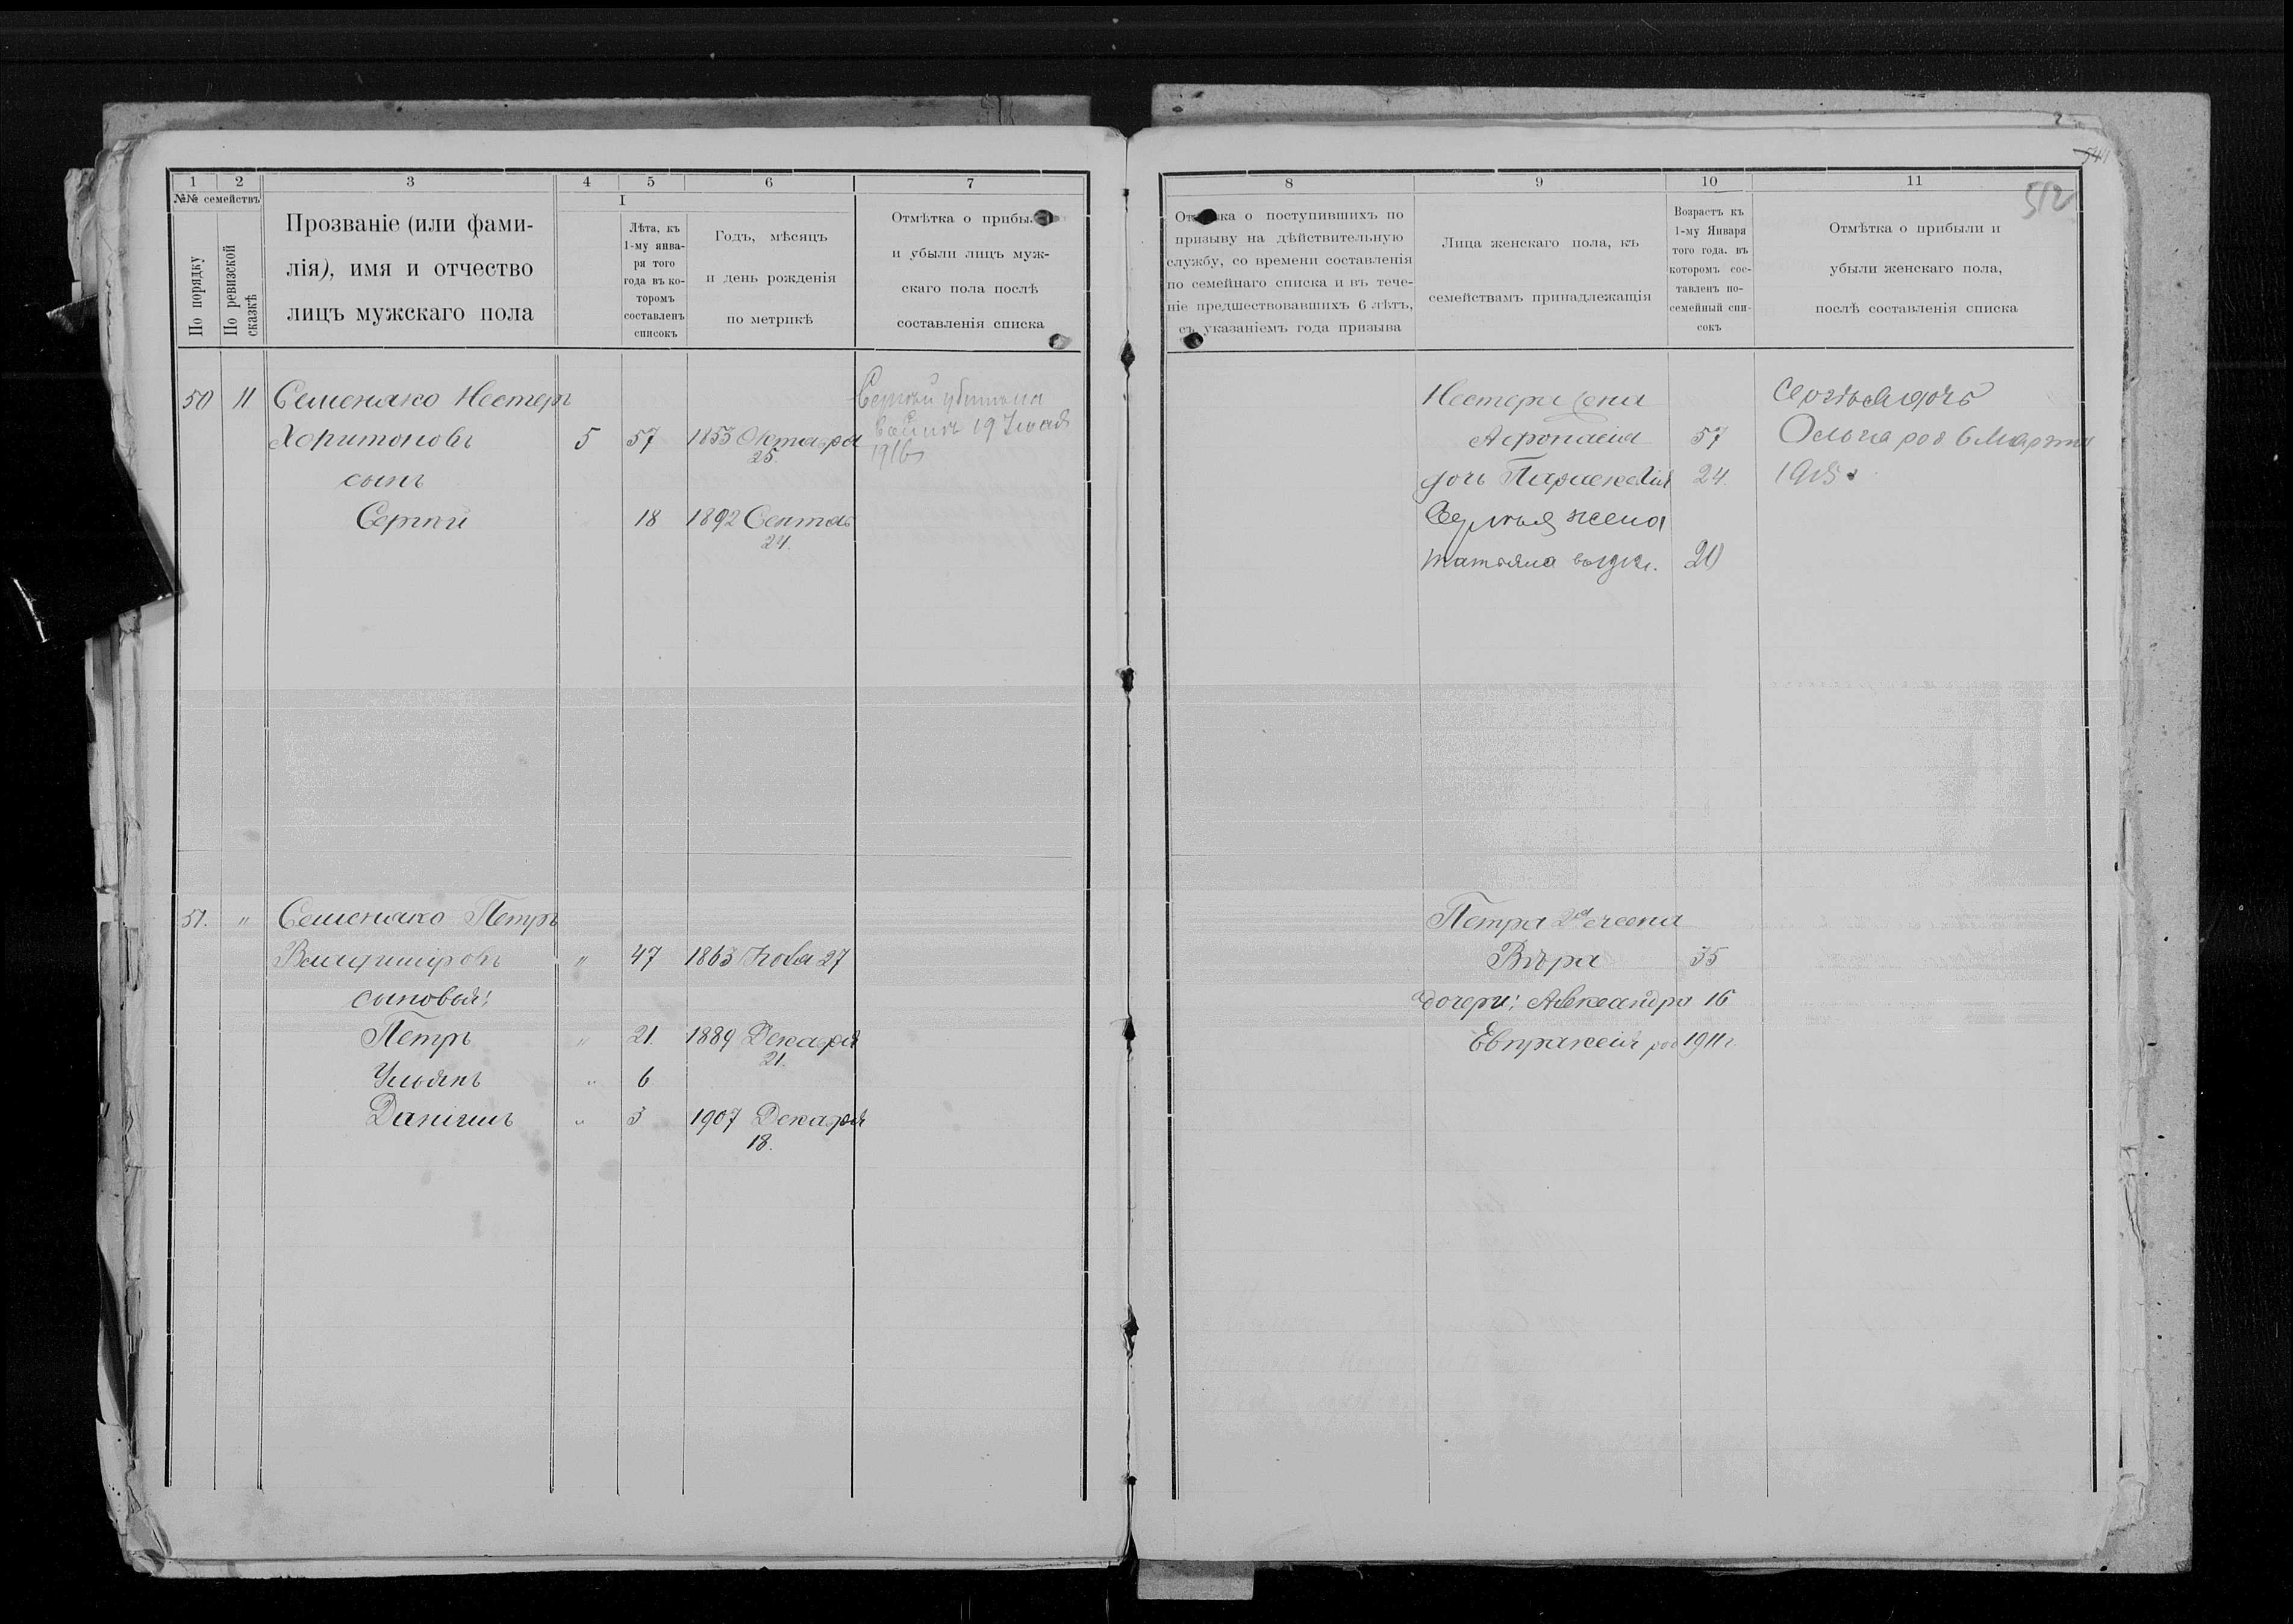 544
512
1 2 3 4 5 6 7
№№ семействъ
По порядку
По ревизской сказкѣ
Прозваніе (или фами-
лія), имя и отчество
лицъ мужскаго пола
I
Лѣта, къ
1-му янва-
ря того
года въ ко-
торомъ
составленъ
списокъ
Годъ, мѣсяцъ
и день рожденія
по метрикѣ
Отмѣтка о прибы
и убыли лицъ муж-
скаго пола послѣ
составленія списка
50 11 Семеняко Нестеръ
Харитоновъ 5 57 1853 Октября
25.
сынъ
Сергѣй 18 1892 Сентяб
24.
Сергѣй убитъ на
войнѣ 19 Іюля
1916
51. " Семеняко Петръ
Владиміровъ " 47 1863 Нояб 27
сыновья:
Петръ " 21 1889 Декабря
21.
Ульянъ " 6
Даніилъ " 3 1907 Декабря
18.
8 9 10 11
Отмѣтка о поступившихъ по
призыву на дѣйствительную
службу, со времени составленія
по семейнаго списка и въ тече-
ніе предшествовавшихъ 6 лѣтъ,
съ указаніемъ года призыва
Лица женскаго пола, къ
семействамъ принадлежащія
Возрастъ къ
1-му Января
того года. въ
которомъ сос-
тавленъ по-
семейный спи-
сокъ
Отмѣтка о прибыли и
убыли женскаго пола,
послѣ составленія списка
Нестера жена
Афонасія 57
дочь Параскевія 24.
Сергѣя жена
Татьяна 20
Сергѣя дочь
Ольга род 6 Марта
1915
Петра 2я жена
Вѣра 35
дочери: Александра 16
Евпраксія род 1911 г.